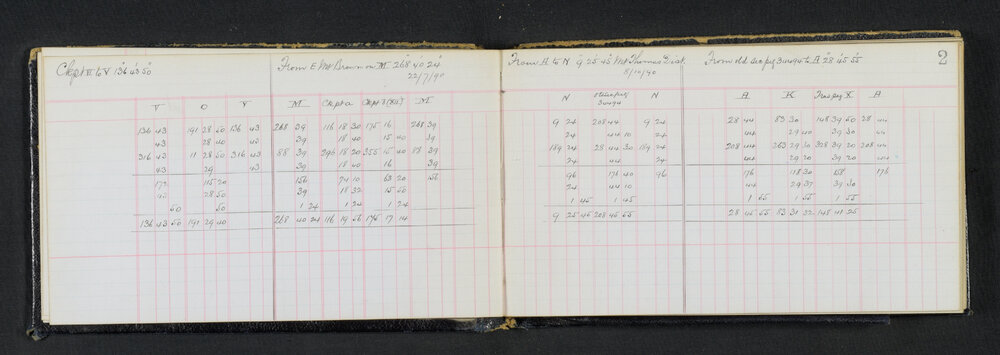 Ckpt III to V 136 43 50
V O V
136 43 191 28 50 136 43
43 28 40 43
316 43 11 28 50 316 43
43 29 43
172 115 20
43 28 50
50 50
136 43 50 191 29 40
From E Mt Brown on M 268 40 24
22/7/90
M Ckpt a Ckpt 3 (XII) M
268 39 116 18 30 175 16 268 39
39 18 40 15 40 39
88 39 296 18 20 355 15 40 88 39
39 18 40 16 39
156 74 10 63 20 156
39 18 32 15 50
1 24 1 24 1 24
268 40 24 116 19 56 175 17 14
From A to N 9 25 45 Mt Thomas East
8/10/90
N N
9 24 208 44 9 24
24 44 10 24
189 24 28 44 30 189 24
24 44 24
96 176 40 96
24 44 10
1 45 1 45
9 25 45 208 45 55
From old to A 28 45 55
2
A K X A
28 44 83 30 148 39 50 28 44
44 29 40 39 30 44
208 44 263 29 30 328 39 20 208 44
44 29 20 39 20 44
176 118 30 158 176
44 29 37 39 30
1 55 1 55 1 55
28 45 55 83 31 32 148 41 25